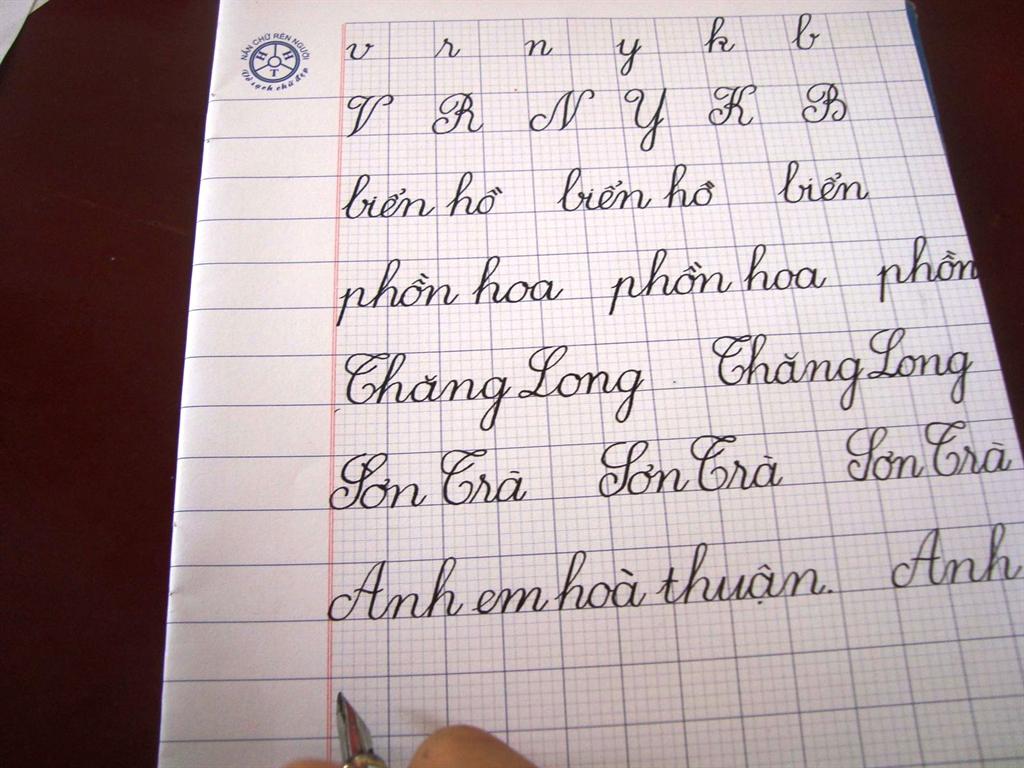 NẮN CHỮ RÈN NGƯỜI
H H T
Vở sạch chữ đẹp
v r n y k b
V R N Y K B
biển hồ biển hồ biển
phồn hoa phồn hoa phồn
Thăng Long Thăng Long
Sơn Trà Sơn Trà Sơn Trà
Anh em hoà thuận. Anh